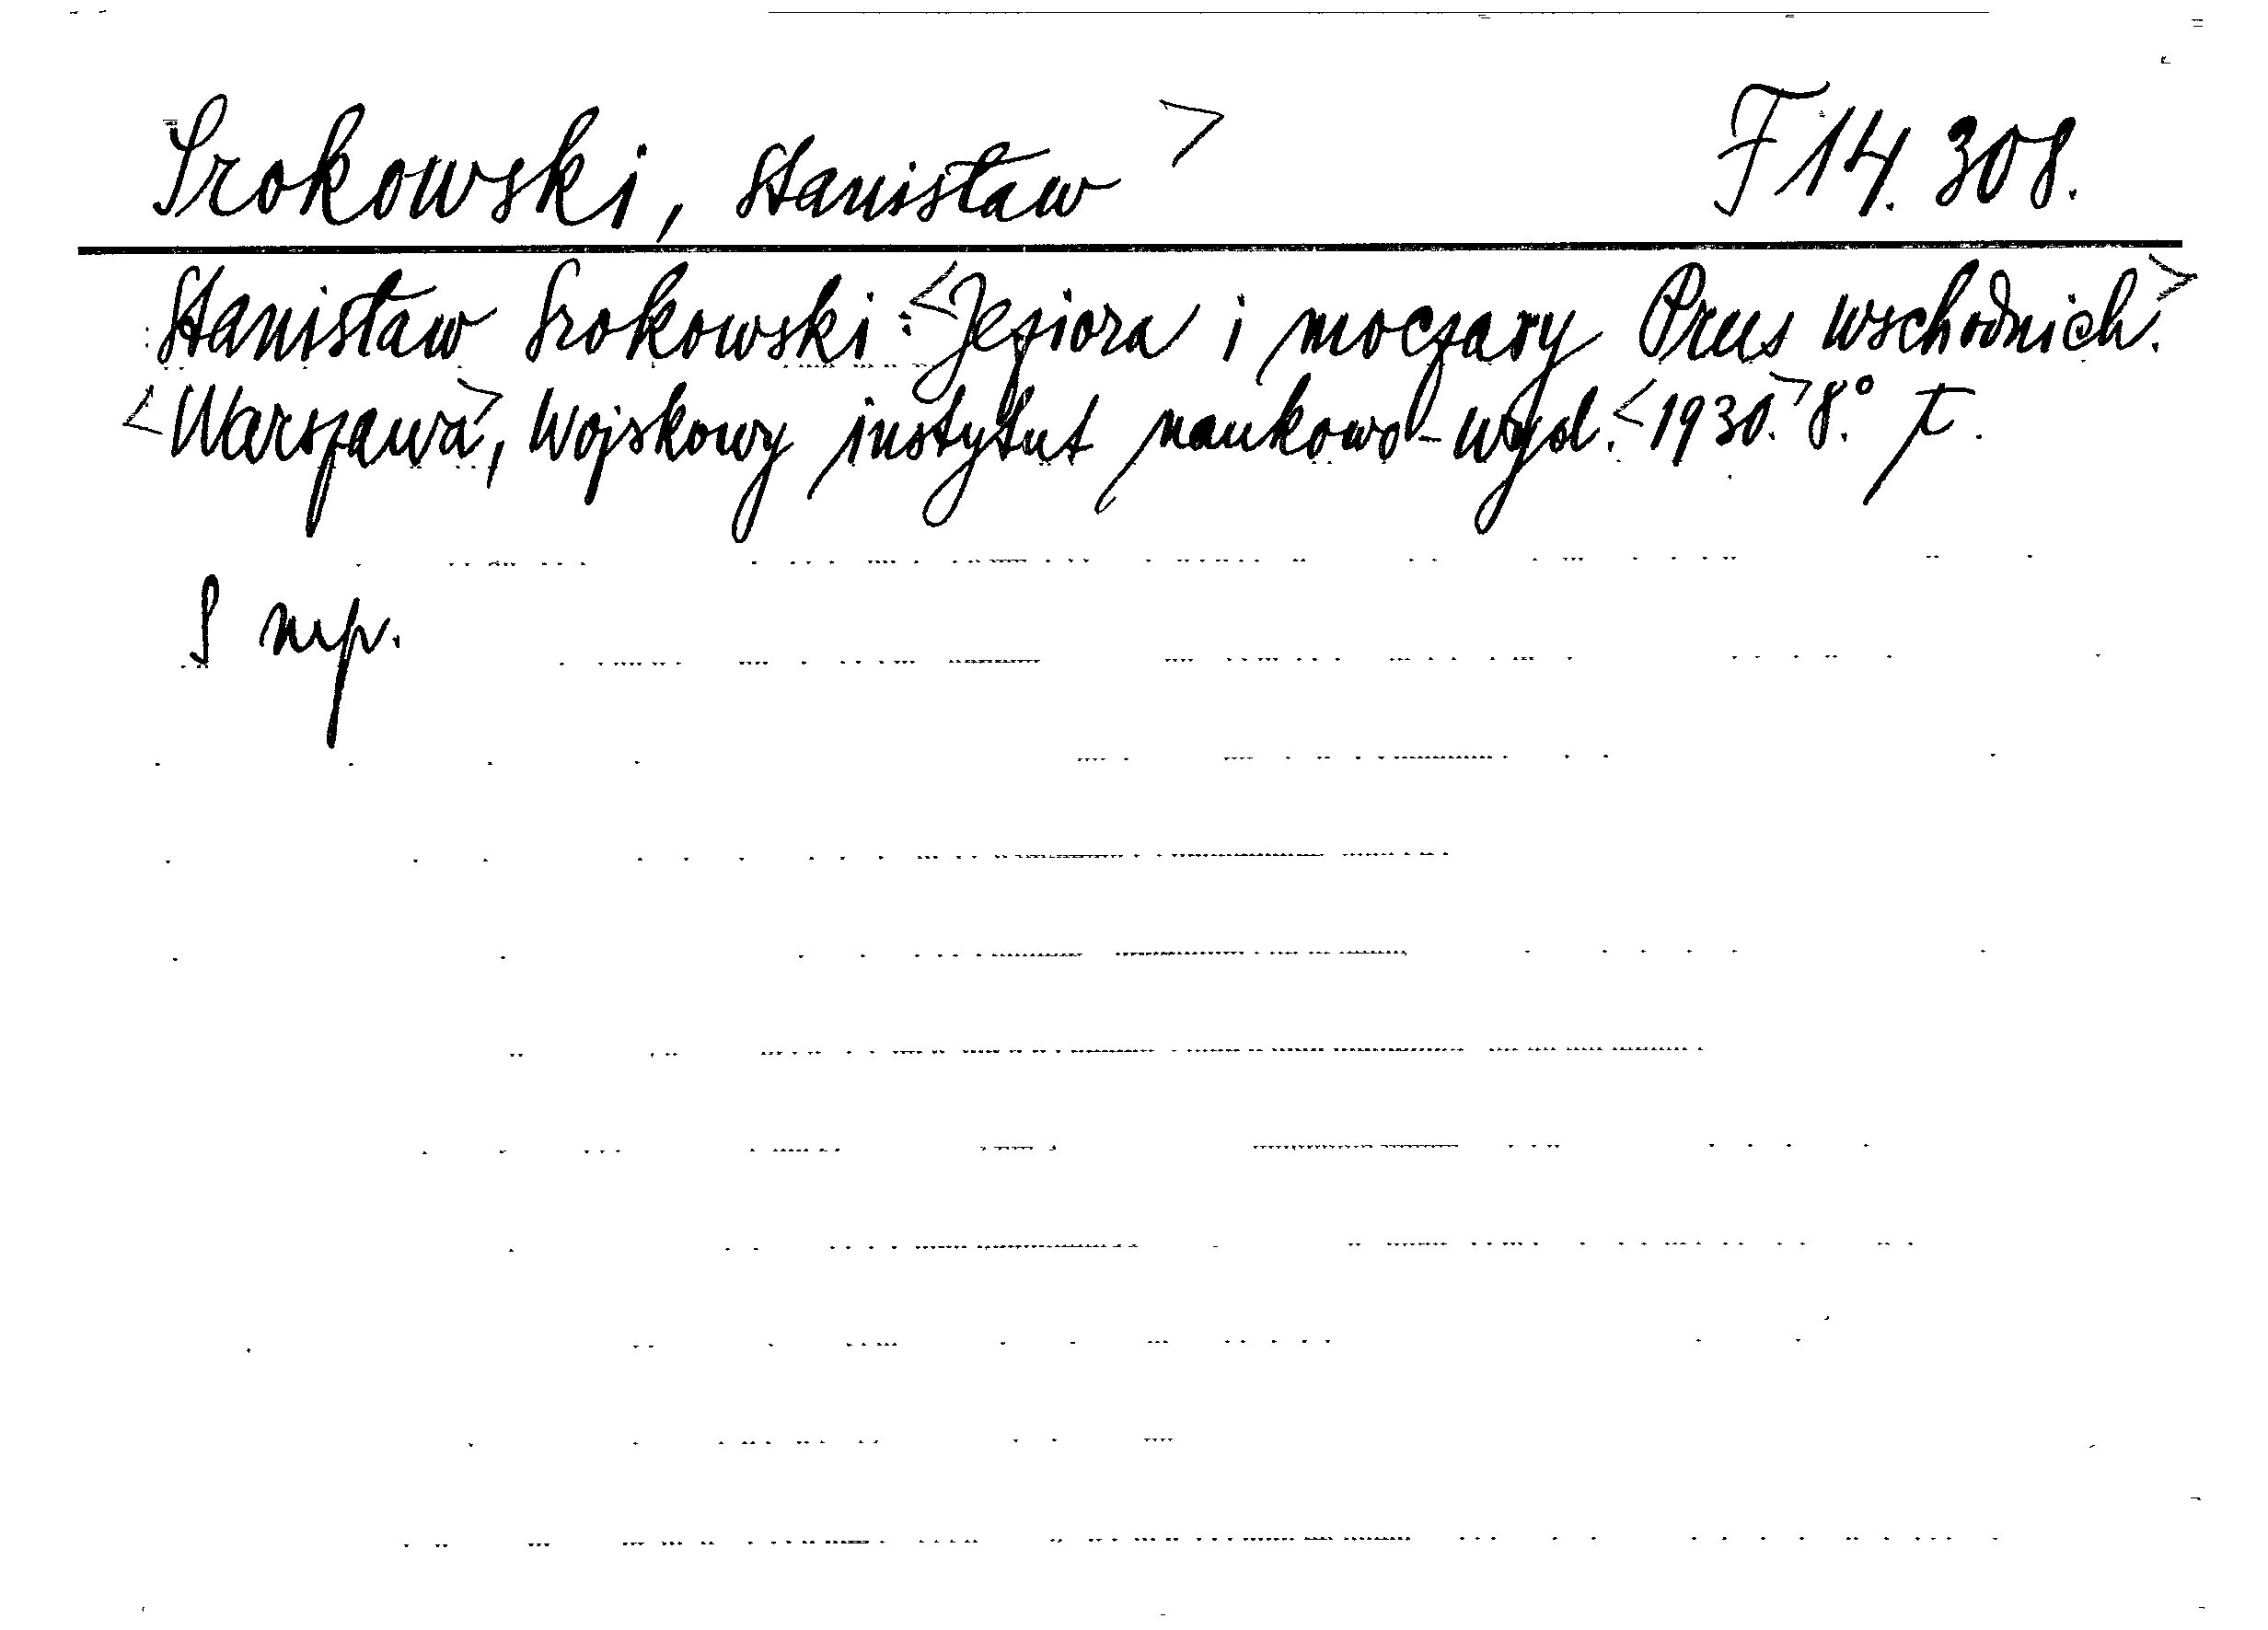 Srokowski, Stanisław > F 14.308.
Stanisław Srokowski: <Jeziora i moczary Prus wschodnich.>
<Warszawa>, Wojskowy instytut naukowo-wyd. <1930.> 8.° T.
S mp.